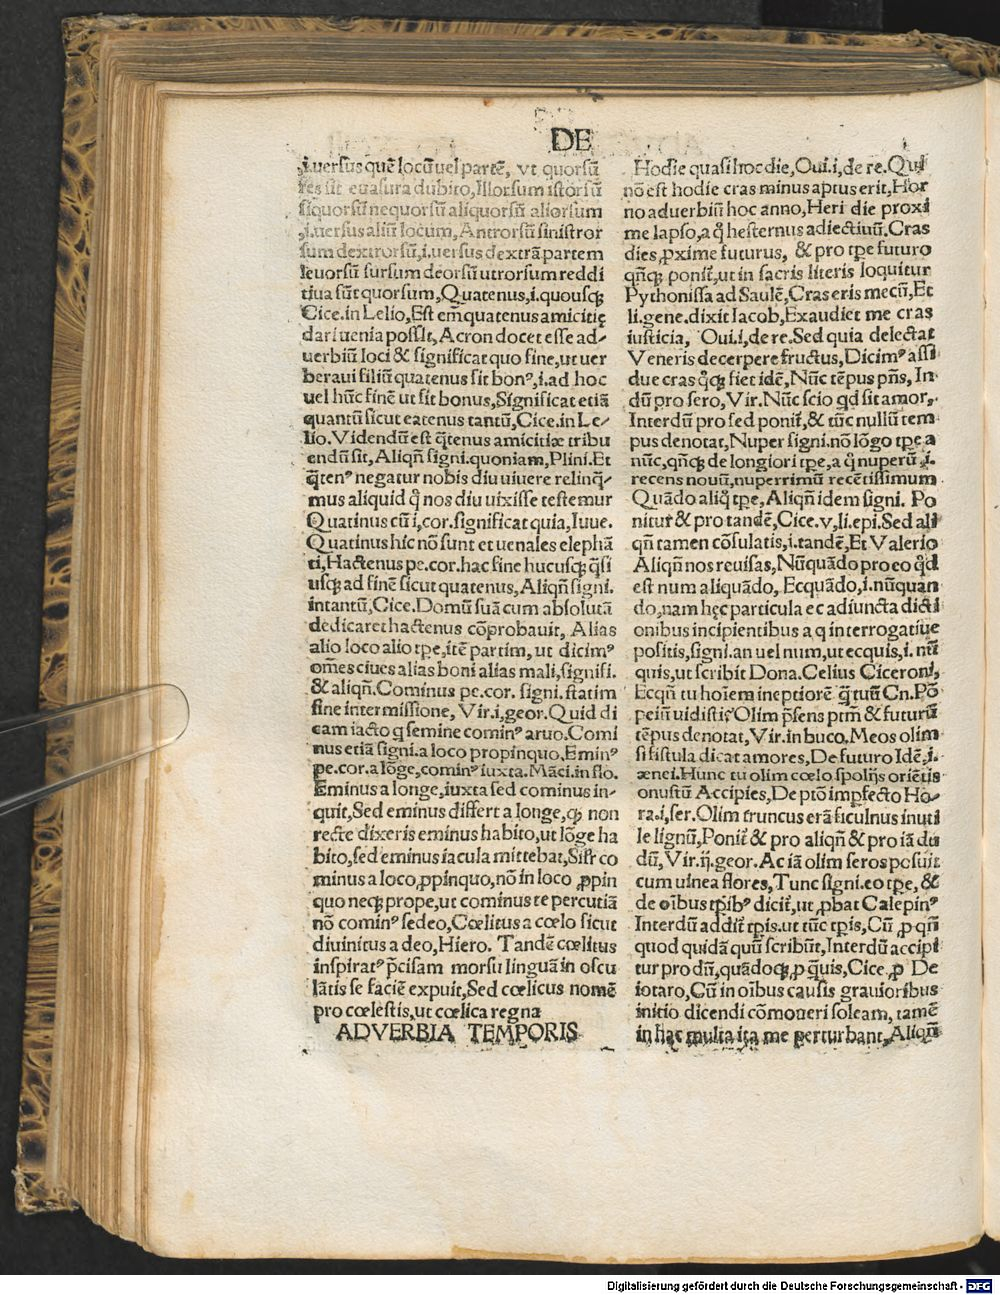 DE
.i.versus quē locū uel partē, vt quorsū
res sit euasura dubito, Illorsum istorsū
siquorsū nequorsū aliquorsū aliorsum
.i.uersus aliū locum, Antrorsū sinistror
sum dextrorsū, i.uersus dextrā partem
leuorsū sursum deorsū utrorsum reddi
tiua sūt quorsum, Quatenus, i.quousqꝫ
Cice.in Lelio, Est em̄ quatenus amicitię
dari uenia possit, Acron docet esse ad⸗
uerbiū loci & significat quo fine, ut uer
beraui filiū quatenus sit bonꝰ, i.ad hoc
uel hūc finē ut sit bonus, Significat etiā
quantū sicut eatenus tantū, Cice.in Le⸗
lio. Videndū est q̄tenus amicitiæ tribu
endū sit, Aliqn̄ signi.quoniam, Plini. Et
q̄tenꝰ negatur nobis diu uiuere relinq̄⸗
mus aliquid q̊ nos diu uixisse testemur
Quatinus cū i, cor.significat quia, Iuue.
Quatinus hic nō sunt et uenales elephā
ti, Hactenus pe.cor.hac fine hucusqꝫ q̄si
usqꝫ ad finē sicut quatenus, Aliqn̄ signi.
in tantū, Cice. Domū suā cum absolutā
dedicaret hactenus cōprobauit, Alias
alio loco alio tpe, itē partim, ut dicimꝰ
om̄es ciues alias boni alias mali, signifi.
& aliqn̄. Cominus pe.cor. signi. statim
sine intermissione, Vir.i, geor. Quid di
cam iacto q semine cominꝰ aruo. Comi
nus etiā signi.a loco propinquo, Eminꝰ
pe.cor.a lōge, cominꝰ iuxta. Māci.in flo.
Eminus a longe, iuxta sed cominus in⸗
quit, Sed eminus differt a longe, qꝫ non
recte dixeris eminus habito, ut lōge ha
bito, sed eminus iacula mittebat, Sil'r co
minus a loco ꝓpinquo, nō in loco ꝓpin
quo neqꝫ prope, ut cominus te percutiā
nō cominꝰ sedeo, Cœlitus a cœlo sicut
diuinitus a deo, Hiero. Tandē cœlitus
inspiratꝰ p̄cisam morsu linguā in oscu
lātis se faciē expuit, Sed cœlicus nomē
pro cœlestis, ut cœlica regna
ADVERBIA TEMPORIS
Hodie quasi hoc die, Oui.i, de re. Qui
nō est hodie cras minus aptus erit, Hor
no aduerbiū hoc anno, Heri die proxi
me lapso, a q̊ hesternus adiectiuū. Cras
dies, ꝓxime futurus, & pro tpe futuro
qn̄qꝫ ponit̄, ut in sacris literis loquitur
Pythonissa ad Saulē, Cras eris mecū, Et
li.gene.dixit Iacob, Exaudiet me cras
iusticia, Oui.i, de re. Sed quia delectat
Veneris decerpere fructus, Dicimꝰ assi
due cras q̊qꝫ fiet idē, Nūc tēpus pn̄s, In
dū pro sero, Vir. Nūc scio qd sit amor,
Interdū pro sed ponit̄, & tūc nullū tem
pus denotat, Nuper signi.nō lōgo tpe a
nūc, qn̄qꝫ de longiori tpe, a q̊ nuperū .i.
recens nouū, nuperrimū recētissimum
Quādo aliq̊ tpe, Aliqn̄ idem signi. Po
nitur & pro tandē, Cice.v, li.epi. Sed ali
qn̄ tamen cōsulatis, i.tandē, Et Valerio
Aliqn̄ nos reuisas, Nūquādo pro eo q̊d
est num aliquādo, Ecquādo, i.nūquan
do, nam hęc particula ec adiuncta dicti
onibus incipientibus a q interrogatiue
positis, signi.an uel num, ut ecquis, i. nū
quis, ut scribit Dona. Celius Ciceroni,
Ecqn̄ tu hoīem ineptiorē q̄ tuū Cn. Pō
peiū uidisti? Olim p̄sens ptm̄ & futurū
tēpus denotat, Vir.in buco. Meos olim
si fistula dicat amores, De futuro Idē, i.
ænei. Hunc tu olim cœlo spolijs oriētis
onustū Accipies, De ptō impfecto Ho⸗
ra.i, ser. Olim truncus erā ficulnus inuti
le lignū, Ponit̄ & pro aliqn̄ & pro iā du
dū, Vir.ij.geor. Ac iā olim seros posuit
cum uinea flores, Tunc signi.eo tpe, &
de oībus tpibꝰ dicit̄, ut ꝓbat Calepinꝰ
Interdū addit̄ tpis.ut tūc tpis, Cū ꝓ qn̄
quod quidā quū scribūt, Interdū accipi
tur pro dū, quādoqꝫ, ꝓ q̄uis, Cice, ꝓ De
iotaro, Cū in oībus causis grauioribus
initio dicendi cōmoueri soleam, tamē
in hac multa ita me perturbant, Aliqn̄
Digitalisierung gefördert durch die Deutsche Forschungsgemeinschaft - DFG